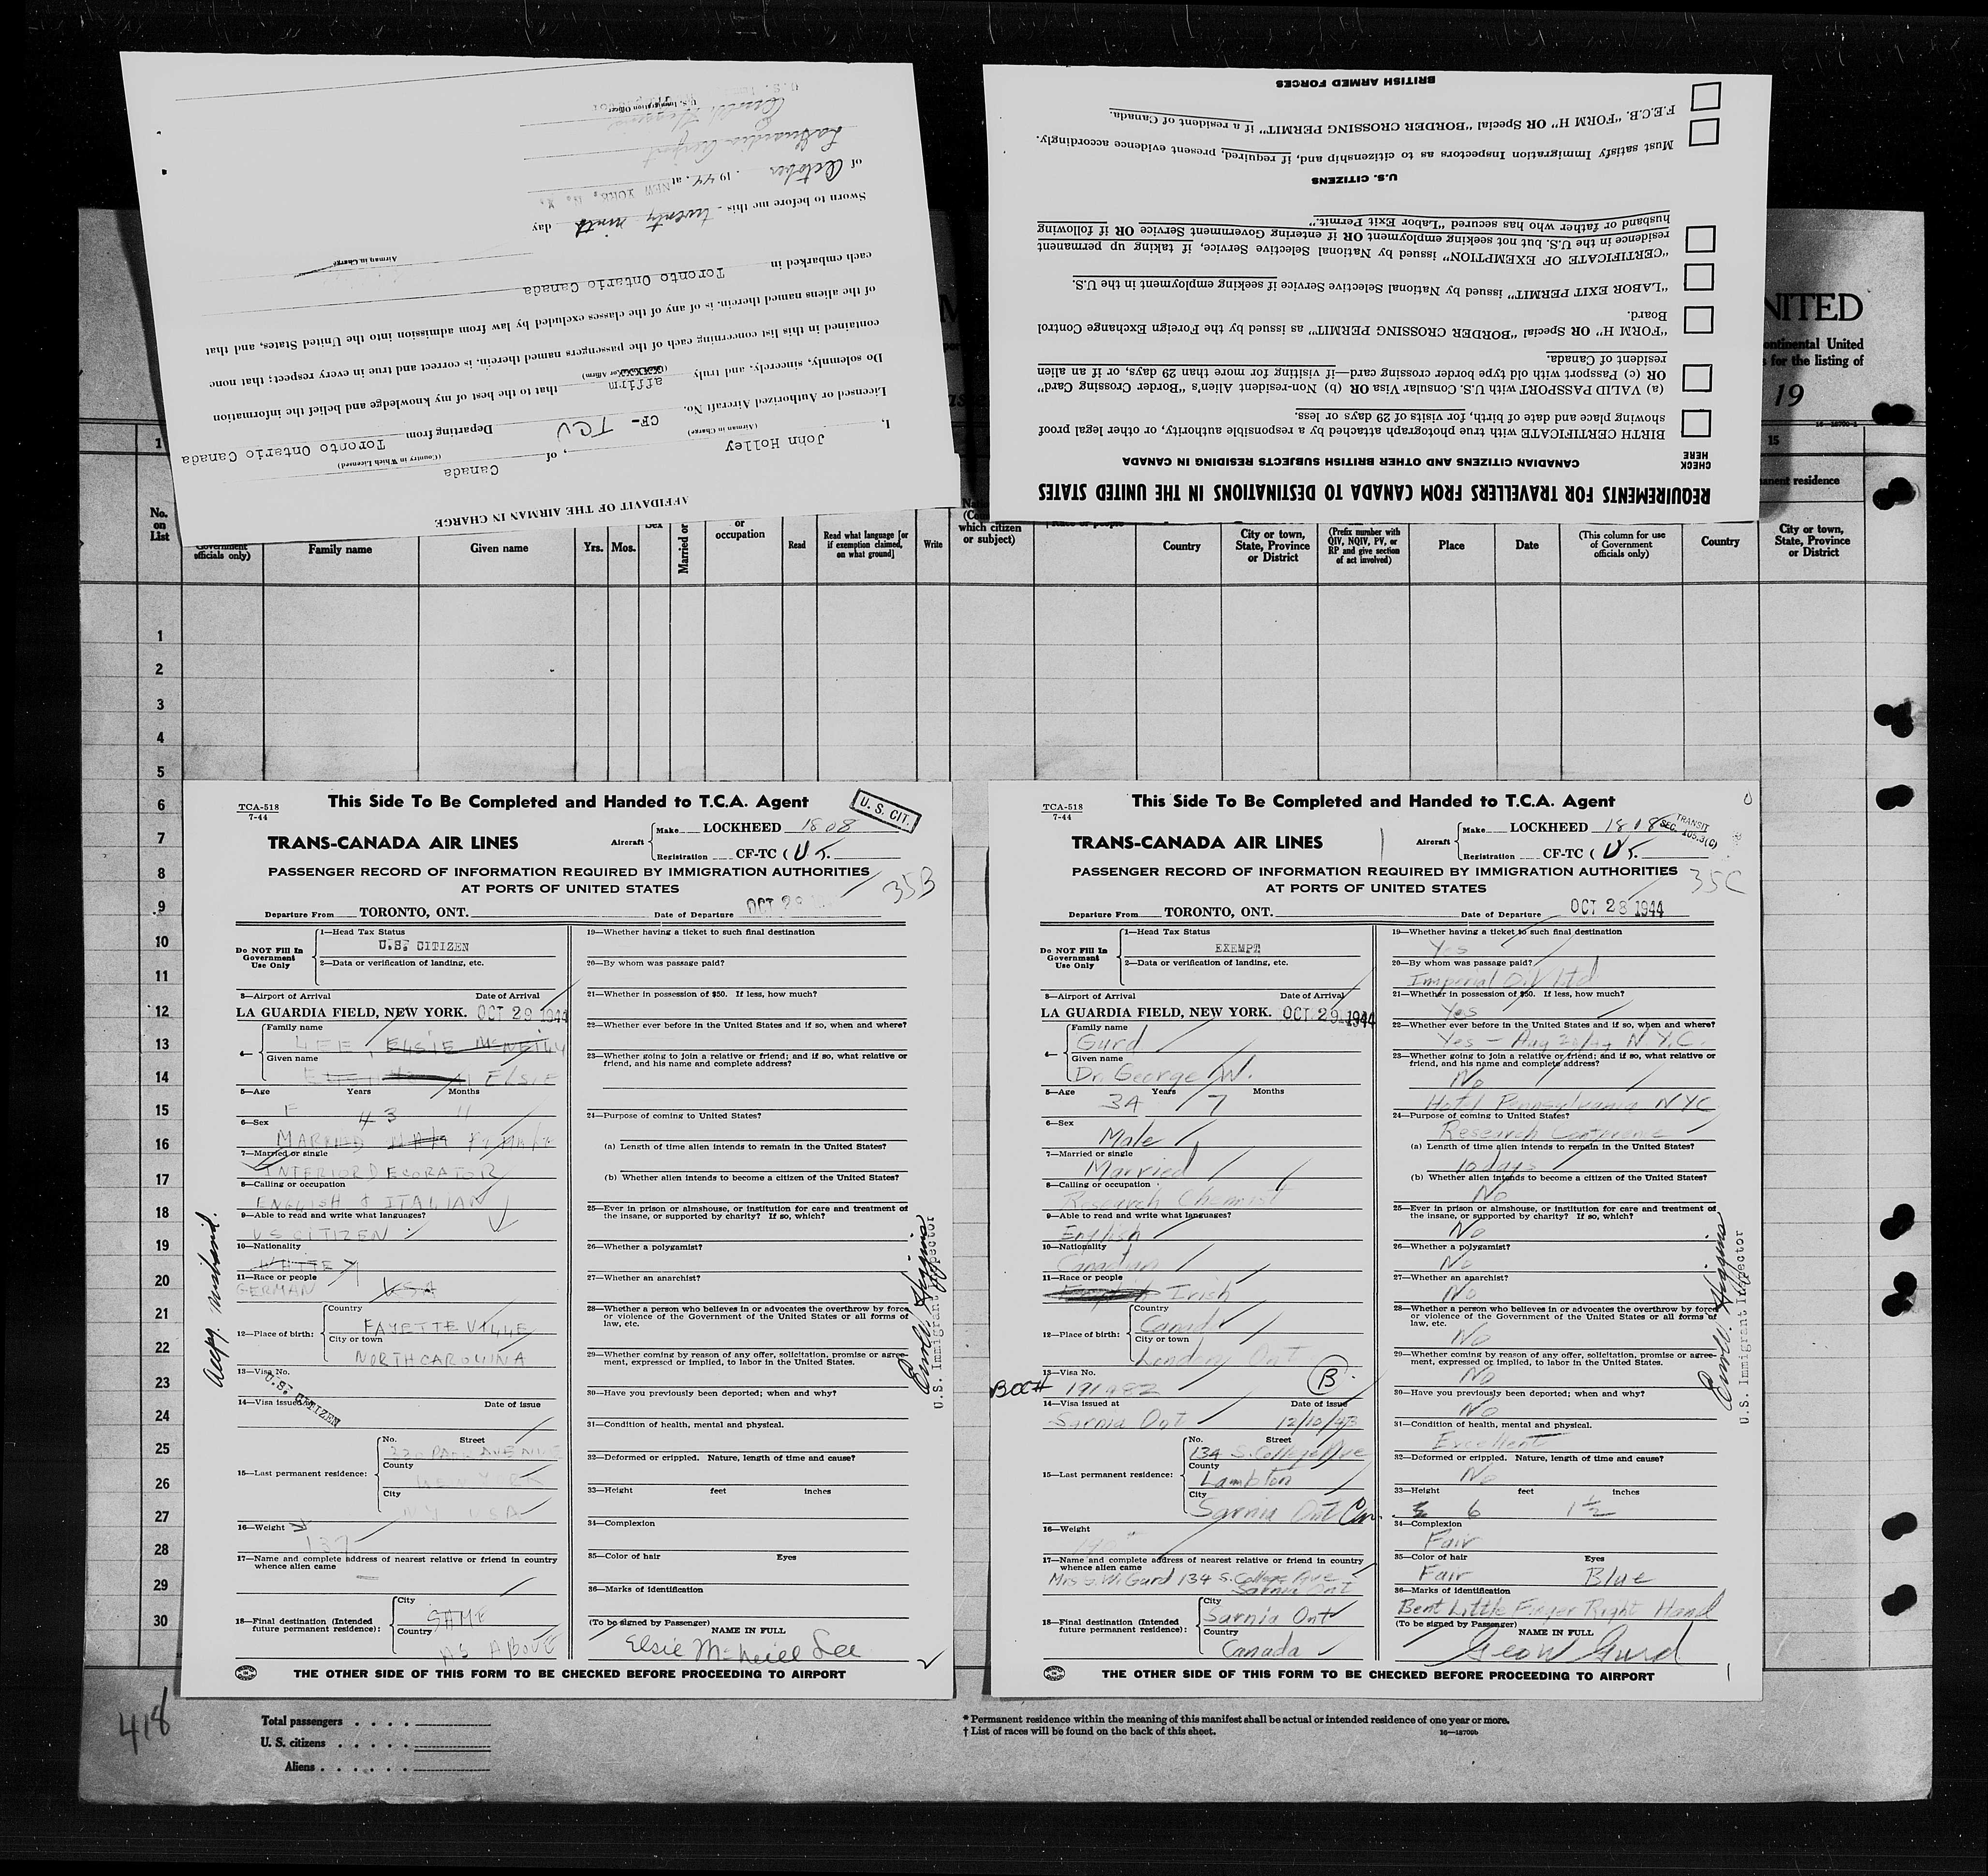 AFFIDAVIT OF THE AIRMAN IN CHARGE
I, John Holley, of Canada
(Airman in Charge) (Country in Which Licensed)
Licensed or Authorized Aircraft No. CF- TCU Departing from Toronto Ontario Canada
Do solemnly, sincerely, and truly affirm that to the best of my knowledge and belief the information
(or Affirm)
contained in this list concerning each of the passengers named therein. is correct and true in every respect; that none
of the aliens named therein. is of any of the classes excluded by law from admission into the United States, and that
each embarked in Toronto Ontario Canada
Airman in Charge
Sworn to before me this twenty ninth day
of October . 1944. at NEW YORK, N. Y.
LaGuardia Airport
U.S. Immigration Officer
REQUIREMENTS FOR TRAVELLERS FROM CANADA TO DESTINATIONS IN THE UNITED STATES
CHECK
HERE
CANADIAN CITIZENS AND OTHER BRITISH SUBJECTS RESIDING IN CANADA
BIRTH CERTIFICATE with true photograph attached by a responsible authority, or other legal proof
showing place and date of birth, for visits of 29 days or less.
(a) VALID PASSPORT with U.S. Consular Visa OR (b) Non-resident Alien's "Border Crossing Card"
OR (c) Passport with old type border crossing card—if visiting for more than 29 days, or if an alien
resident of Canada.
"FORM H" OR Special "BORDER CROSSING PERMIT" as issued by the Foreign Exchange Control
Board.
"LABOR EXIT PERMIT" issued by National Selective Service if seeking employment in the U.S.
"CERTIFICATE OF EXEMPTION" issued by National Selective Service, if taking up permanent
residence in the U.S. but not seeking employment OR if entering Government Service OR if following
husband or father who has secured "Labor Exit Permit."
U.S. CITIZENS
Must satisfy Immigration Inspectors as to citizenship and, if required, present evidence accordingly.
F.E.C.B. "FORM H" OR Special "BORDER CROSSING PERMIT" if a resident of Canada.
BRITISH ARMED FORCES
NITED
ontinental United
s for the listing of
19
1
15
anent residence
No.
on
List
Government
officials only)
Family name
Given name
Yrs.
Mos.
Sex
Married or
or
occupation
Read
Read what language [or
if exemption claimed,
on what ground]
Write
which citizen
or subject)
Country
City or town,
State, Province
or District
(Prefix number with
QIV, NQIV, PV, or
RP and give section
of act involved)
Place
Date
(This column for use
of Government
officials only)
Country
City or town,
State, Province
or District
1
2
3
4
5
6
7
8
9
10
11
12
13
14
15
16
17
18
19
20
21
22
23
24
25
26
27
28
29
30
TCA-518
7-44
This Side To Be Completed and Handed to T.C.A. Agent
U. S. CIT.
TRANS-CANADA AIR LINES
Aircraft
Make LOCKHEED 1808
Registration CF-TC (U).
PASSENGER RECORD OF INFORMATION REQUIRED BY IMMIGRATION AUTHORITIES
AT PORTS OF UNITED STATES
35B
Departure From TORONTO, ONT. Date of Departure OCT 29
Do NOT Fill In
Government
Use Only
1—Head Tax Status
U.S. CITIZEN
2—Data or verification of landing, etc.
3—Airport of Arrival Date of Arrival
LA GUARDIA FIELD, NEW YORK. OCT 29 1944
4—
Family name
LEE, ELSIE McNEILL
Given name
ELSIE
5—Age Years Months
F 43 11
6—Sex
MARRIED
7—Married or single
INTERIOR DECORATOR
8—Calling or occupation
ENGLISH & ITALIAN
9—Able to read and write what languages?
US CITIZEN
10—Nationality
WHITE
11—Race or people
GERMAN USA
12—Place of birth:
Country
FAYETTEVILLE
City or town
NORTH CAROLINA
13—Visa No.
U.S. CITIZEN
14—Visa issued Date of issue
15—Last permanent residence:
No. Street
PARK AVENUE
County
NEW YORK
City
NY USA
16—Weight
137
17—Name and complete address of nearest relative or friend in country
whence alien came
18—Final destination (Intended
future permanent residence):
City
SAME
Country
AS ABOVE
19—Whether having a ticket to such final destination
20—By whom was passage paid?
21—Whether in possession of $50. If less, how much?
22—Whether ever before in the United States and if so, when and where?
23—Whether going to join a relative or friend; and if so, what relative or
friend, and his name and complete address?
24—Purpose of coming to United States?
(a) Length of time alien intends to remain in the United States?
(b) Whether alien intends to become a citizen of the United States?
25—Ever in prison or almshouse, or institution for care and treatment of
the insane, or supported by charity? If so, which?
26—Whether a polygamist?
27—Whether an anarchist?
28—Whether a person who believes in or advocates the overthrow by force
or violence of the Government of the United States or all forms of
law, etc.
29—Whether coming by reason of any offer, solicitation, promise or agree-
ment, expressed or implied, to labor in the United States.
30—Have you previously been deported; when and why?
31—Condition of health, mental and physical.
32—Deformed or crippled. Nature, length of time and cause?
33—Height feet inches
34—Complexion
35—Color of hair Eyes
36—Marks of identification
(To be signed by Passenger)
NAME IN FULL
Elsie McNeill Lee
U.S. Immigrant Inspector
THE OTHER SIDE OF THIS FORM TO BE CHECKED BEFORE PROCEEDING TO AIRPORT
TCA-518
7-44
This Side To Be Completed and Handed to T.C.A. Agent
TRANS-CANADA AIR LINES
Aircraft
Make LOCKHEED 1818
Registration CF-TC (U).
TRANSIT
SEC. 105.3(C)
PASSENGER RECORD OF INFORMATION REQUIRED BY IMMIGRATION AUTHORITIES
AT PORTS OF UNITED STATES
35C
Departure From TORONTO, ONT. Date of Departure OCT 28 1944
Do NOT Fill In
Government
Use Only
1—Head Tax Status
EXEMPT
2—Data or verification of landing, etc.
3—Airport of Arrival Date of Arrival
LA GUARDIA FIELD, NEW YORK. OCT 29 1944
4—
Family name
Gurd
Given name
Dr. George W.
5—Age Years Months
34 7
6—Sex
Male
7—Married or single
Married
8—Calling or occupation
Research Chemist
9—Able to read and write what languages?
English
10—Nationality
Canadian
11—Race or people
Irish
12—Place of birth:
Country
Canada
City or town
London, Ont
13—Visa No.
BCC# 191482 B
14—Visa issued at Date of issue
Sarnia Ont 12/10/43
15—Last permanent residence:
No. Street
134 S. College Ave
County
Lambton
City
Sarnia Ont Can.
16—Weight
17—Name and complete address of nearest relative or friend in country
whence alien came
Mrs G. W. Gurd 134 S. College Ave
Sarnia Ont
18—Final destination (Intended
future permanent residence):
City
Sarnia Ont
Country
Canada
19—Whether having a ticket to such final destination
Yes
20—By whom was passage paid?
Imperial Oil Ltd
21—Whether in possession of $50. If less, how much?
Yes
22—Whether ever before in the United States and if so, when and where?
Yes - Aug N.Y.C.
23—Whether going to join a relative or friend; and if so, what relative or
friend, and his name and complete address?
No
Hotel Pennsylvania NYC
24—Purpose of coming to United States?
Research Conference
(a) Length of time alien intends to remain in the United States?
10 days
(b) Whether alien intends to become a citizen of the United States?
No
25—Ever in prison or almshouse, or institution for care and treatment of
the insane, or supported by charity? If so, which?
No
26—Whether a polygamist?
No
27—Whether an anarchist?
No
28—Whether a person who believes in or advocates the overthrow by force
or violence of the Government of the United States or all forms of
law, etc.
No
29—Whether coming by reason of any offer, solicitation, promise or agree-
ment, expressed or implied, to labor in the United States.
No
30—Have you previously been deported; when and why?
No
31—Condition of health, mental and physical.
Excellent
32—Deformed or crippled. Nature, length of time and cause?
No
33—Height feet inches
6 1½
34—Complexion
Fair
35—Color of hair Eyes
Fair Blue
36—Marks of identification
Bent Little Finger Right Hand
(To be signed by Passenger)
NAME IN FULL
Geo W Gurd
U.S. Immigrant Inspector
THE OTHER SIDE OF THIS FORM TO BE CHECKED BEFORE PROCEEDING TO AIRPORT
418
Total passengers . . . .
U. S. citizens . . . . .
Aliens . . . . . .
* Permanent residence within the meaning of this manifest shall be actual or intended residence of one year or more.
† List of races will be found on the back of this sheet.
16—18700b